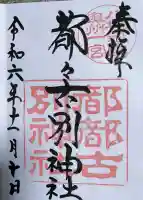 奉拝
都々古別神社
令和六年十一月十日
都都古
別神社